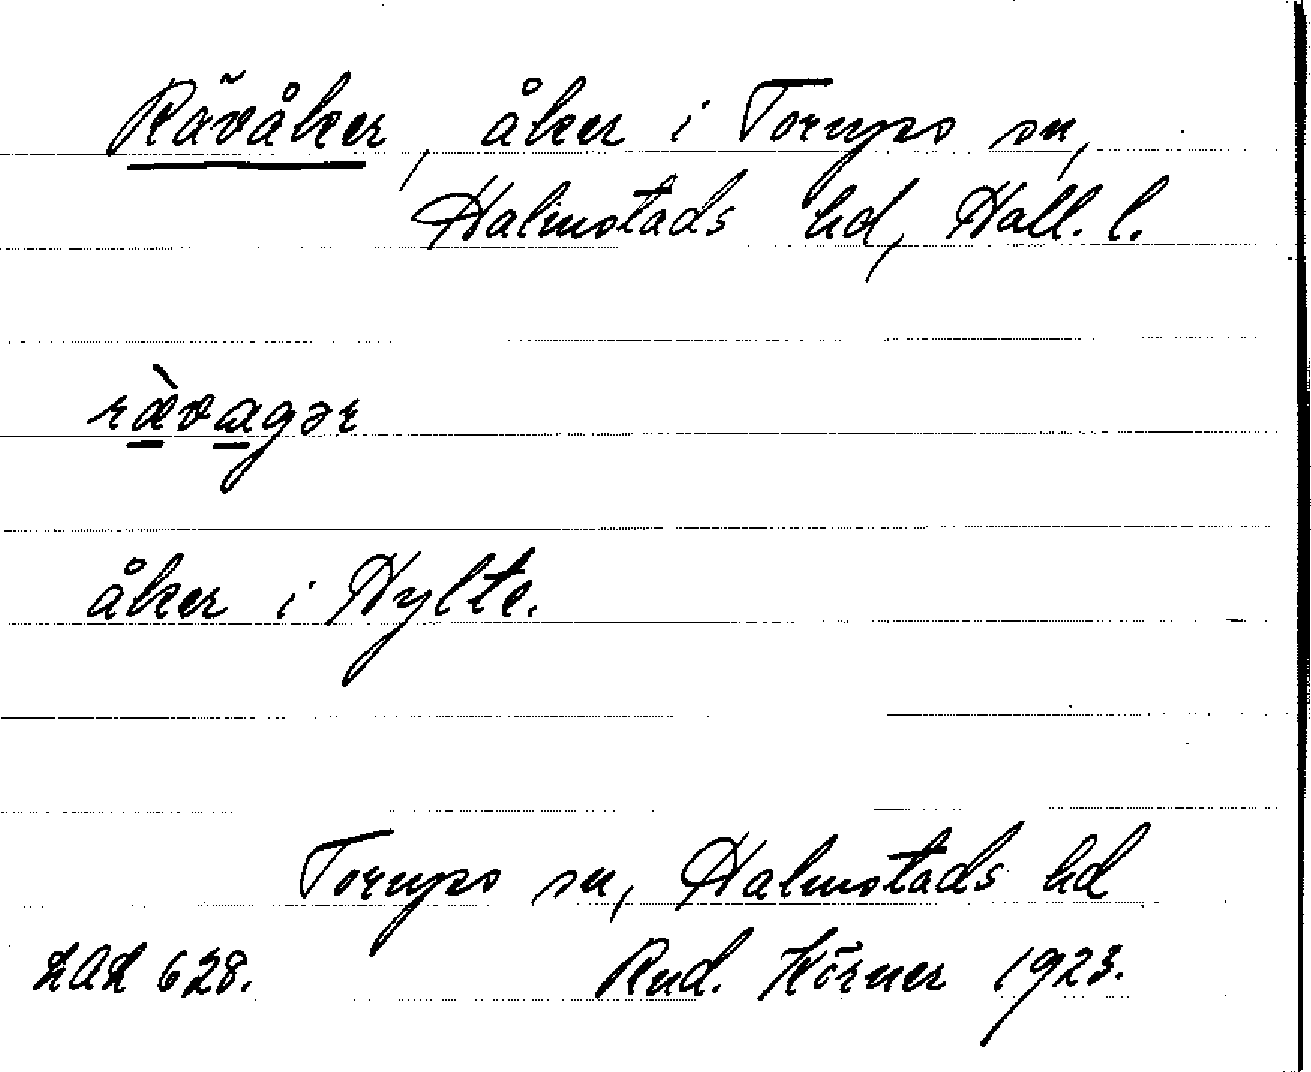 Rävåker, åker i Torups sn,
Halmstads hd, Hall. l.
ræ̀vagər
åker i Hylte.
Torups sn, Halmstads hd
LAL 628. Rud. Körner 1923.